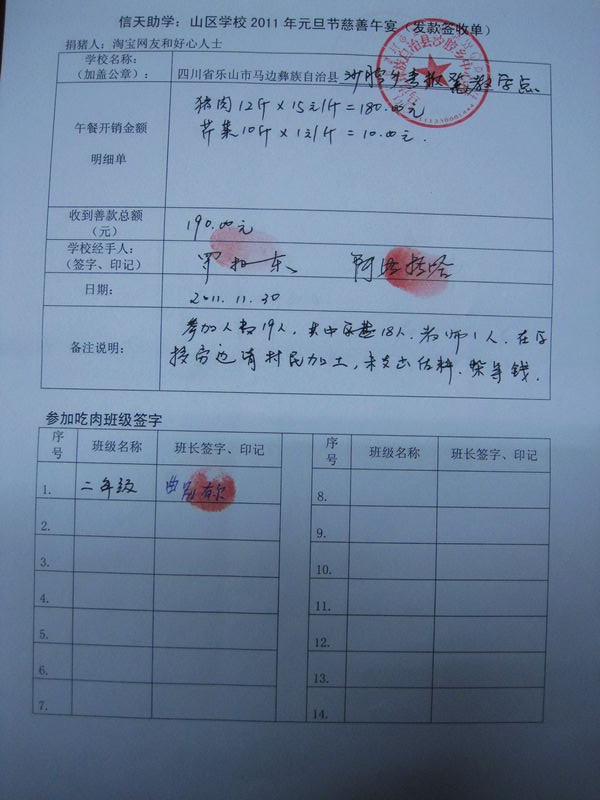 信天助学：山区学校 2011 年元旦节慈善午宴（发款签收单）
捐猪人：淘宝网友和好心人士
学校名称：
（加盖公章）：
四川省乐山市马边彝族自治县
教学点
午餐开销金额
明细单
猪肉12斤×15元/斤=180.00元
芹菜10斤×1元/斤=10.00元.
收到善款总额
（元）
190.00元
学校经手人：
（签字、印记）
日期：
2011.11.30
备注说明：
参加人数19人，其中学生18人，老师1人，在学
校旁边请村民加工，未支出佐料、柴等钱.
参加吃肉班级签字
序号 班级名称 班长签字、印记 序号 班级名称 班长签字、印记
1. 二年级 8.
2. 9.
3. 10.
4. 11.
5. 12.
6. 13.
7. 14.